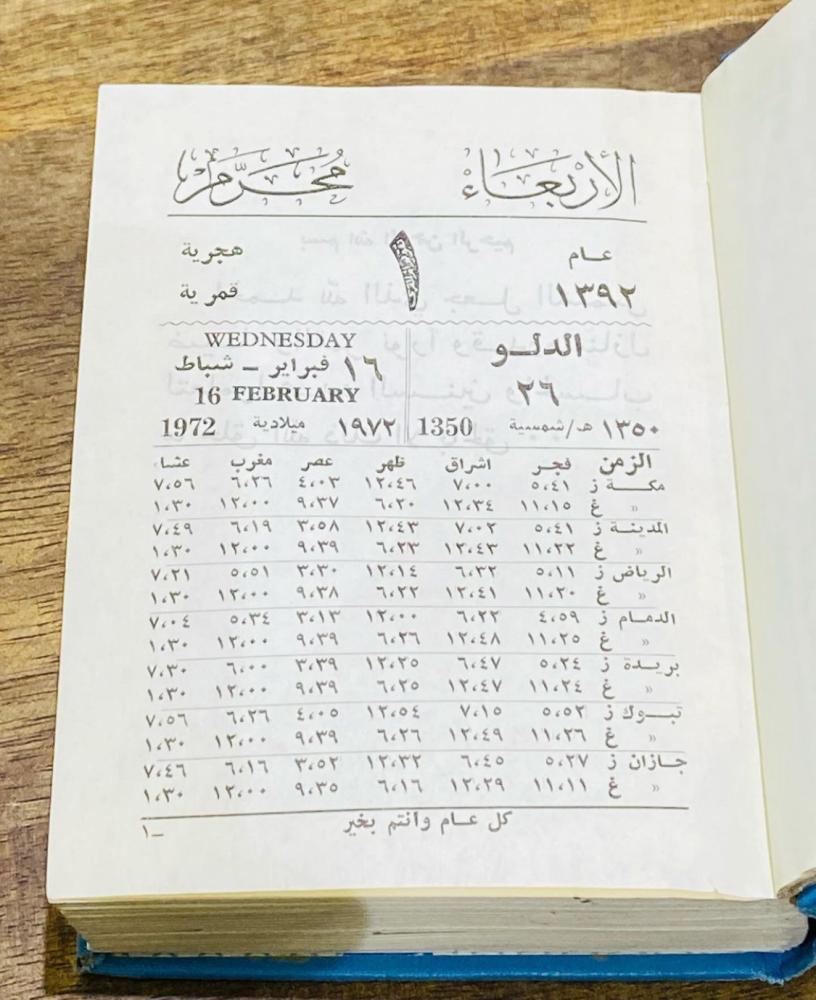 الأربعاء محرم
عام ١ هجرية
١٣٩٢ قمرية
الدلو WEDNESDAY
٢٦ ١٦ فبراير – شباط
16 FEBRUARY
١٣٥٠ هـ/شمسية 1350 ١٩٧٢ ميلادية 1972
الزمن فجر اشراق ظهر عصر مغرب عشا
مكة ز ٥،٤١ ٧،٠٠ ١٢،٤٦ ٤،٠٣ ٦،٢٦ ٧،٥٦
» غ ١١،١٥ ١٢،٣٤ ٦،٢٠ ٩،٣٧ ١٢،٠٠ ١،٣٠
المدينة ز ٥،٤١ ٧،٠٢ ١٢،٤٣ ٣،٥٨ ٦،١٩ ٧،٤٩
» غ ١١،٢٢ ١٢،٤٣ ٦،٢٣ ٩،٣٩ ١٢،٠٠ ١،٣٠
الرياض ز ٥،١١ ٦،٣٢ ١٢،١٤ ٣،٣٠ ٥،٥١ ٧،٢١
» غ ١١،٢٠ ١٢،٤١ ٦،٢٢ ٩،٣٨ ١٢،٠٠ ١،٣٠
الدمام ز ٤،٥٩ ٦،٢٢ ١٢،٠٠ ٣،١٣ ٥،٣٤ ٧،٠٤
» غ ١١،٢٥ ١٢،٤٨ ٦،٢٦ ٩،٣٩ ١٢،٠٠ ١،٣٠
بريدة ز ٥،٢٤ ٦،٤٧ ١٢،٢٥ ٣،٣٩ ٦،٠٠ ٧،٣٠
» غ ١١،٢٤ ١٢،٤٧ ٦،٢٥ ٩،٣٩ ١٢،٠٠ ١،٣٠
تبوك ز ٥،٥٢ ٧،١٥ ١٢،٥٤ ٤،٠٥ ٦،٢٦ ٧،٥٦
» غ ١١،٢٦ ١٢،٤٩ ٦،٢٦ ٩،٣٩ ١٢،٠٠ ١،٣٠
جازان ز ٥،٢٧ ٦،٤٥ ١٢،٣٢ ٣،٥٢ ٦،١٦ ٧،٤٦
» غ ١١،١١ ١٢،٢٩ ٦،١٦ ٩،٣٥ ١٢،٠٠ ١،٣٠
كل عام وانتم بخير
–١